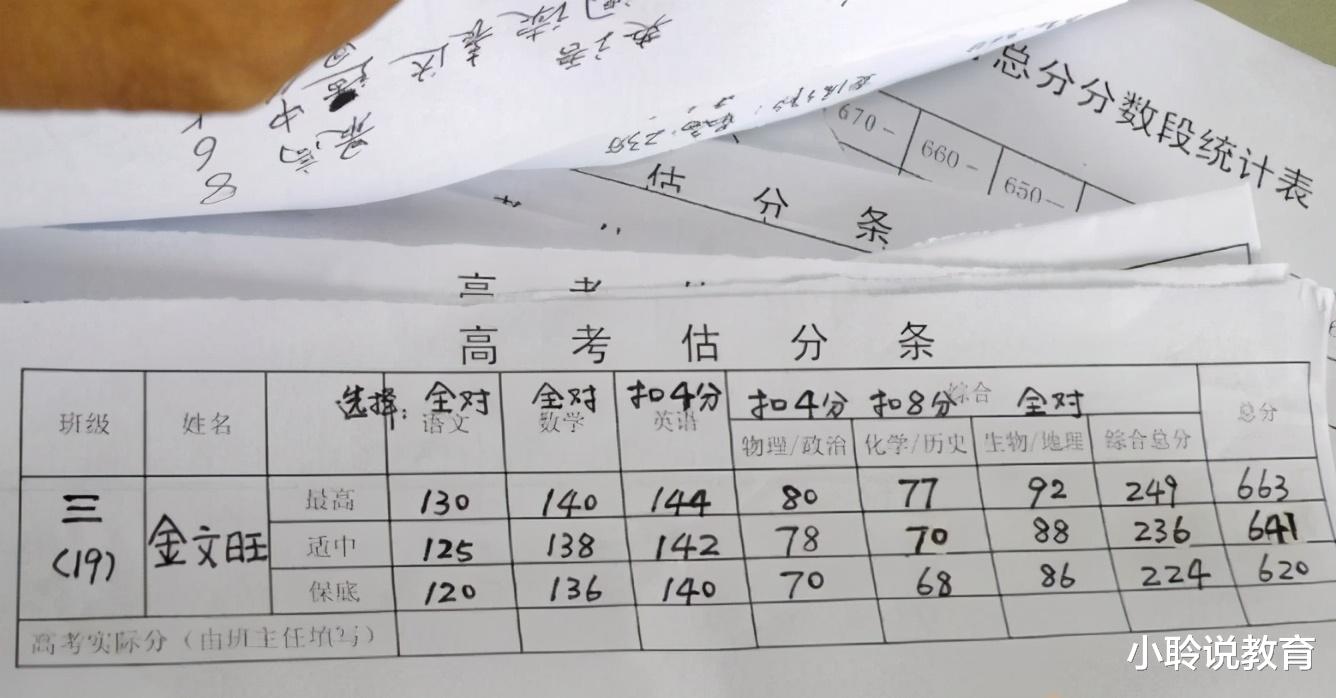 总分分数段统计表
670- 660- 650-
估分条
高考估分条
选择: 全对 全对 扣4分 扣4分 扣8分 综合 全对
班级 姓名 语文 数学 英语 物理/政治 化学/历史 生物/地理 综合总分 总分
三(19) 金文旺
最高 130 140 144 80 77 92 249 663
适中 125 138 142 78 70 88 236 641
保底 120 136 140 70 68 86 224 620
高考实际分（由班主任填写）
小聆说教育